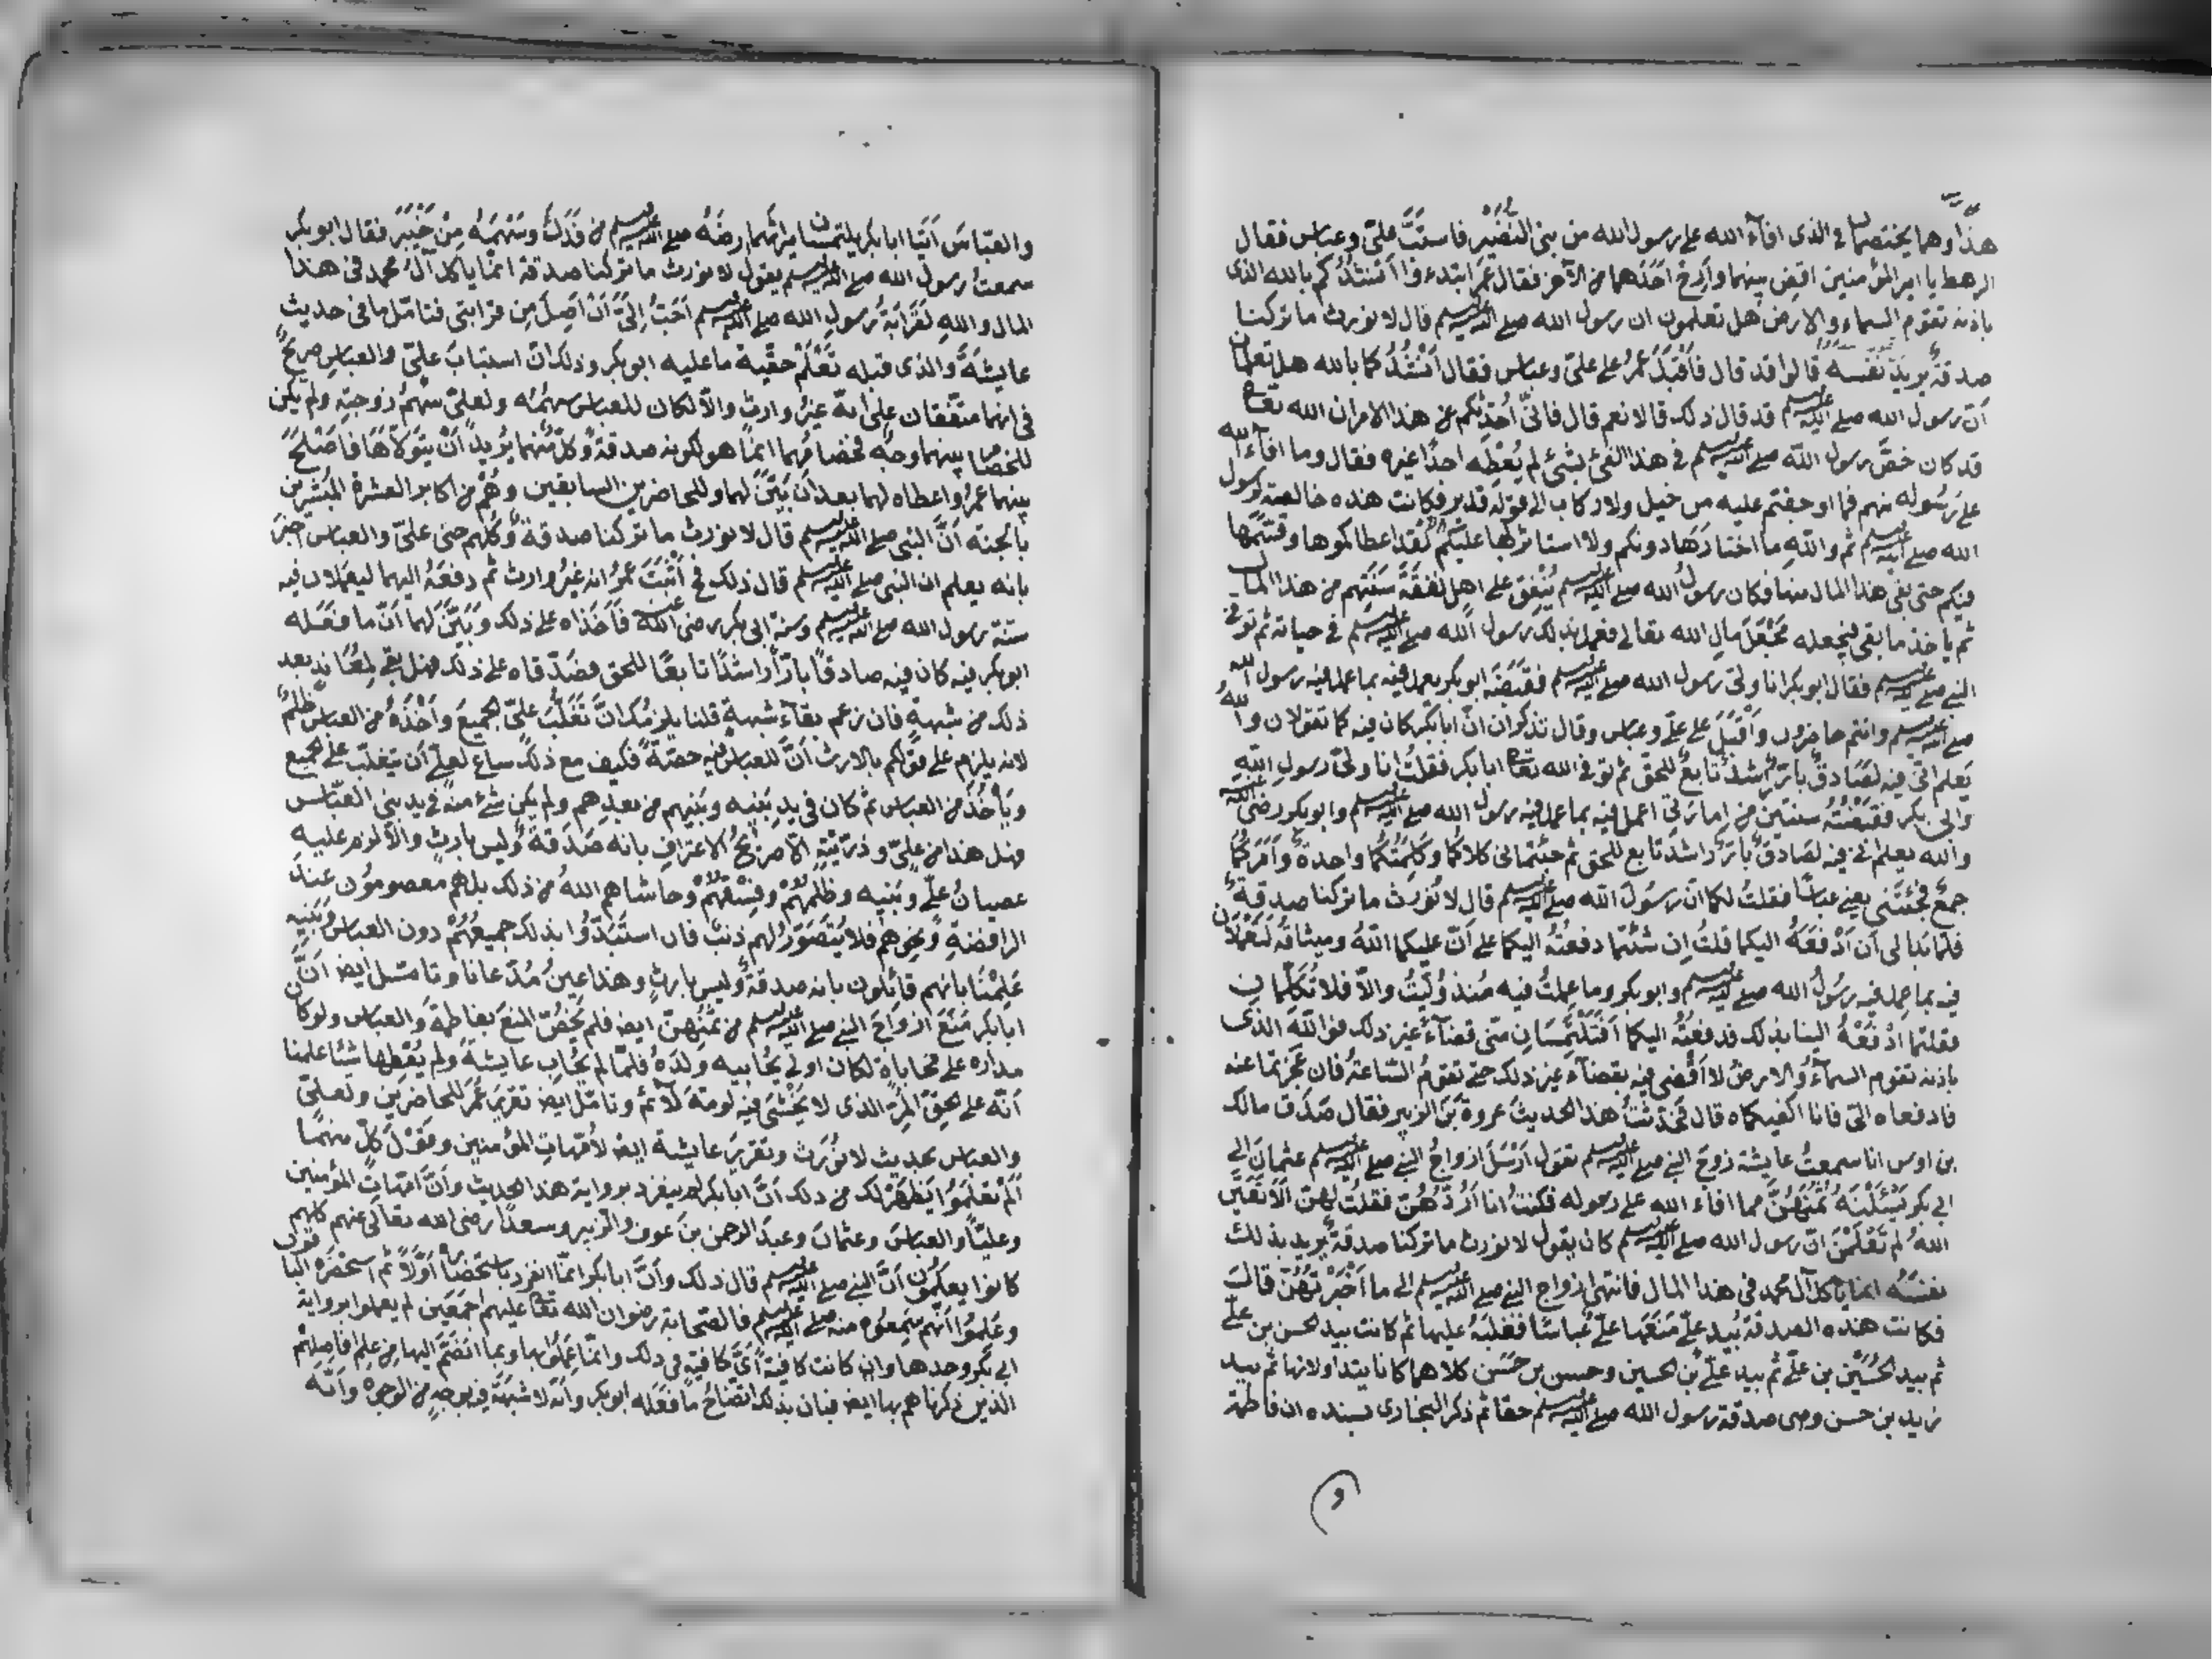 هذا وهما يختصمان في الذى افآء الله على رسول الله من بنى النضير فاستبّ علىّ وعباس فقال
الرهط يا امير المؤمنين اقض بينهما وارح احدهما من الآخر فقال عمر ابتدءوا انشدكم بالله الذى
باذنه تقوم السماء والارض هل تعلمون ان رسول الله صلى الله عليه وسلم قال لا نورث ما تركنا
صدقة يريد نفسه قالوا قد قال فاقبل عمر على علىّ وعباس فقال انشدكما بالله هل تعلمان
أن رسول الله صلى الله عليه وسلم قد قال ذلك قالا نعم قال فانّى احدثكم عن هذا الامر ان الله تعالى
قد كان خصّ رسول الله صلى الله عليه وسلم في هذا الفئ بشئ لم يعطه احدًا غيره فقال وما افآء الله
على رسوله منهم فما اوجفتم عليه من خيل ولا ركاب الى قوله قدير فكانت هذه خالصة لرسول
الله صلى الله عليه وسلم ثم والله ما اختارها دونكم ولا استاثر بها عليكم لقد اعطاكموها وقسّمها
فيكم حتى بقى هذا المال منها فكان رسول الله صلى الله عليه وسلم ينفق على اهله نفقة سنتهم من هذا المال
ثم ياخذ ما بقى فيجعله مجعل مال الله تعالى فعمل بذلك رسول الله صلى الله عليه وسلم في حياته ثم توفى
النبى صلى الله عليه وسلم فقال ابو بكر انا ولىّ رسول الله صلى الله عليه وسلم فقبضه ابو بكر يعمل فيه بما عمل فيه رسول الله
صلى الله عليه وسلم وانتم حاضرون واقبل على علىّ وعباس وقال تذكران انّ ابا بكر كان فيه كما تقولان والله
يعلم انّى فيه لصادق بارّ راشد تابع للحق ثم توفى الله تعالى ابا بكر فقلت انا ولىّ رسول الله
وابى بكر فقبضته سنتين من امارتى اعمل فيه بما عمل فيه رسول الله صلى الله عليه وسلم وابو بكر رضى الله عنه
والله يعلم انى فيه لصادق بارّ راشد تابع للحق ثم جئتمانى كلاكما وكلمتكما واحدة وامركما
جمع فجئتنى يعنى عباسًا فقلت لكما انّ رسول الله صلى الله عليه وسلم قال لا نورث ما تركنا صدقة
فلما بدا لى أن ادفعه اليكما قلت إن شئتما دفعته اليكما على أنّ عليكما الله وميثاقه لتعملان
فيه بما عمل فيه رسول الله صلى الله عليه وسلم وابو بكر وما عملت فيه منذ ولّيت والّا فلا تكلمانى
فقلتما ادفعه الينا بذلك فدفعته اليكما افتلتمسان منّى قضآءً غير ذلك فوالله الذى
باذنه تقوم السمآء والارض لا اقضى فيه بقضآء غير ذلك حتى تقوم الساعة فان عجزتما عنه
فادفعاه الىّ فانا اكفيكماه قال فحدثت هذا الحديث عروة بن الزبير فقال صدق مالك
بن اوس انا سمعت عايشة زوج النبى صلى الله عليه وسلم تقول ارسل ازواج النبى صلى الله عليه وسلم عثمان الى
ابى بكر يسئلنه ثمنهنّ مما افاء الله على رسوله فكنت انا اردّهنّ فقلت لهنّ الا تتّقين
الله لم تعلمن انّ رسول الله صلى الله عليه وسلم كان يقول لا نورث ما تركنا صدقة يريد بذلك
نفسه انما ياكل آل محمد في هذا المال فانتهى ازواج النبى صلى الله عليه وسلم الى ما اخبرتهنّ قال
فكانت هذه الصدقة بيد علىّ منعها علىّ عباسًا فغلبه عليها ثم كانت بيد الحسن بن علىّ
ثم بيد الحسين بن علىّ ثم بيد علىّ بن الحسين وحسن بن حسن كلاهما كانا يتداولانها ثم بيد
زيد بن حسن وهى صدقة رسول الله صلى الله عليه وسلم حقا ثم ذكر البخارى بسنده ان فاطمة
و
والعباس أتيا ابا بكر يلتمسان ميراثهما ارضه صلى الله عليه وسلم من فدك وسهمه من خيبر فقال ابو بكر
سمعت رسول الله صلى الله عليه وسلم يقول لا نورث ما تركنا صدقة انّما ياكل آل محمد في هذا
المال والله لقرابة رسول الله صلى الله عليه وسلم احبّ الىّ أن اصل من قرابتى فتامّل ما في حديث
عايشة والذى قبله تعلم حقّية ما عليه ابو بكر وذلك انّ استباب علىّ والعباس صريح
في انهما متفقان على انه غير وارث والّا لكان للعباس سهمه ولعلىّ سهم زوجته ولم يكن
للخصام بينهما وجه فخصامهما انما هو لكونه صدقة وكلّ منهما يريد أن يتولاها فاصلح
بينهما عمر واعطاه لهما بعد أن بيّن لهما وللحاضرين السابقين وهم من اكابر العشرة المبشرين
بالجنة أنّ النبى صلى الله عليه وسلم قال لا نورث ما تركنا صدقة وكلهم حتى علىّ والعباس اخبر
بانه يعلم ان النبى صلى الله عليه وسلم قال ذلك فح اثبت عمر انه غير وارث ثم دفعه اليهما ليعملا فيه
سنّة رسول الله صلى الله عليه وسلم وسنة ابى بكر رضى الله عنه فاخذاه على ذلك وبيّن لهما أنّ ما فعله
ابو بكر فيه كان فيه صادقا بارّا راشدًا تابعًا للحق فصدّقاه على ذلك فهل بقى لمعاند بعد
ذلك من شبهة فان زعم بقآء شبهة قلنا يلزمك انّ تغلّب علىّ الجميع واخذه من العباس ظلم
لانه يلزم على قولكم بالارث أنّ للعباس فيه حصّة فكيف مع ذلك ساغ لعلىّ أن يتغلّب على الجميع
وياخذ من العباس ثم كان في يد بنيه وبنيهم من بعدهم ولم يكن شئ منه في يد بنى العبّاس
فهل هذا من علىّ وذرّيّته الّا صريح الاعتراف بانه صدقة وليس بارث والّا لزم عليه
عصيان علىّ وبنيه وظلمهم وفسقهم وحاشاهم الله من ذلك بل هم معصومون عند
الرافضة ونحوهم فلا يتصوّر لهم ذنب فان استبدّوا بذلك جميعهم دون العباس وبنيه
علمنا بانهم قائلون بانه صدقة وليس بارث وهذا عين مدّعانا وتامّل ايض انّ
ابا بكر منع ازواج النبى صلى الله عليه وسلم من ثمنهنّ ايض فلم يخصّ المنع بفاطمة والعباس ولو كان
مداره على محاباة لكان اولى يحابيه ولده فلمّا لم يحاب عايشة ولم يعطها شئا علمنا
انّه على الحقّ المرّ الذى لا يخشى فيه لومة لآئم وتامّل ايض تقرير عمر للحاضرين ولعلىّ
والعباس بحديث لا نورث وتقرير عايشة ايض لامّهات المؤمنين وقول كلّ منهما
ألم تعلموا يظهر لك من ذلك أنّ ابا بكر لم ينفرد برواية هذا الحديث وأنّ امهات المؤمنين
وعليًّا والعباس وعثمان وعبد الرحمن بن عوف والزبير وسعدًا رضى الله تعالى عنهم كلهم
كانوا يعلمون أنّ النبى صلى الله عليه وسلم قال ذلك وأنّ ابا بكر انّما انفرد باستحضاره اوّلاً ثم استحضره الباقون
وعلموا انهم سمعوه منه صلى الله عليه وسلم فالصحابة رضوان الله تعالى عليهم اجمعين لم يعملوا برواية
ابى بكر وحدها وان كانت كافية اىّ كافية في ذلك وانّما عملوا بها وبما انضمّ اليها من علم افاضلهم
الذين ذكرناهم بها ايض فبان بذلك اتضاح ما فعله ابو بكر وانّه لا شبهة فيه بوجه من الوجوه وانّه